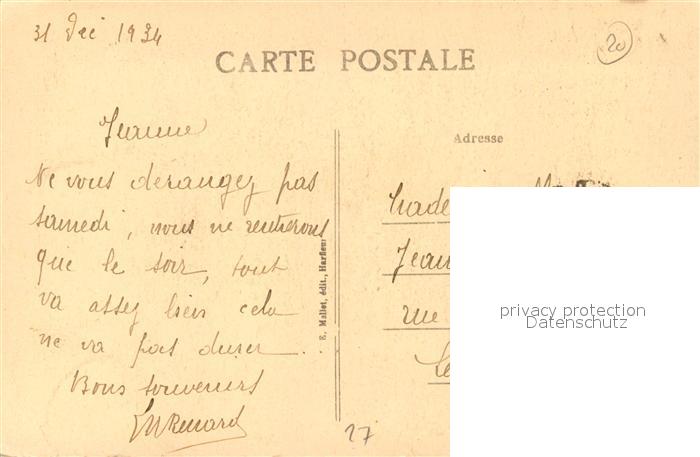 31 Dec 1934
20
CARTE POSTALE
Jeanne
Adresse
Ne vous derangez pas
samedi, nous ne rentrerons
que le soir, tout
va assez bien cela
ne va pas durer.
Bons souvenirs
Renard
E. Mallet, édit., Harfleur
Jean
rue
privacy protection
Datenschutz
27